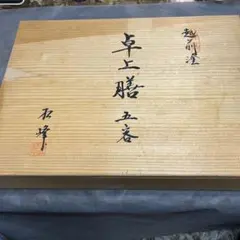 越前塗
卓上膳 五客
石峰